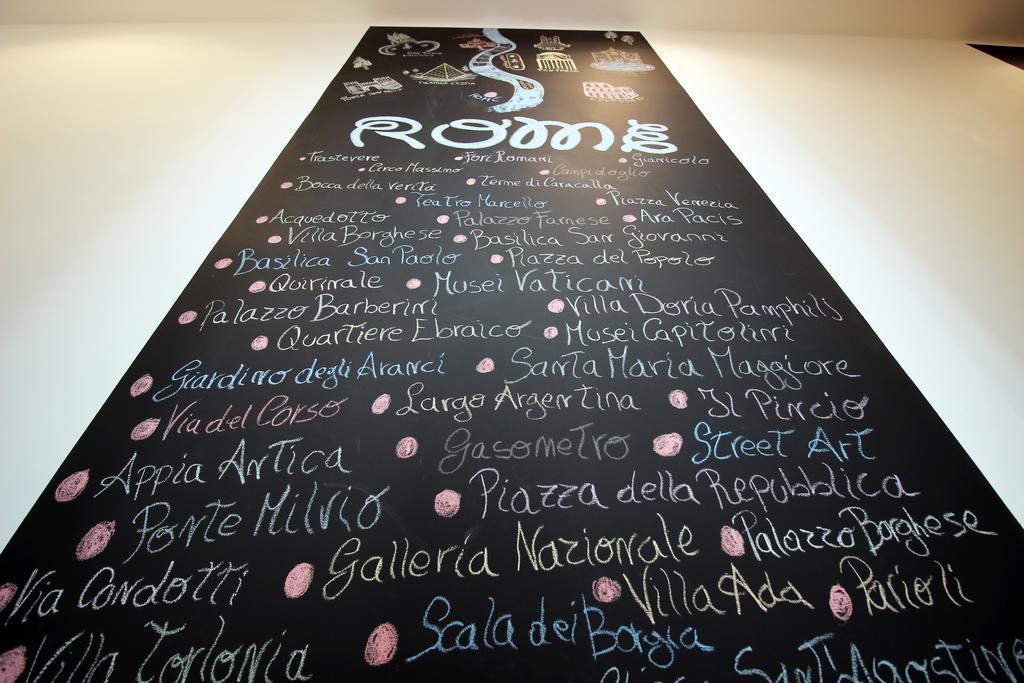 PIRAMIDE CESTIA
ROME
ROME
Trastevere Fori Romani Gianicolo
Circo Massimo Campidoglio
Bocca della verità Terme di Caracalla
Teatro Marcello Piazza Venezia
Acquedotto Palazzo Farnese Ara Pacis
Villa Borghese Basilica San Giovanni
Basilica San Paolo Piazza del Popolo
Quirinale Musei Vaticani
Palazzo Barberini Villa Doria Pamphili
Quartiere Ebraico Musei Capitolini
Giardino degli Aranci Santa Maria Maggiore
Via del Corso Largo Argentina Il Pincio
Gasometro Street Art
Appia Antica Piazza della Repubblica
Ponte Milvio Palazzo Borghese
Galleria Nazionale
Via Condotti Villa Ada Parioli
Scala dei Borgia
Villa Torlonia Sant'Agostino